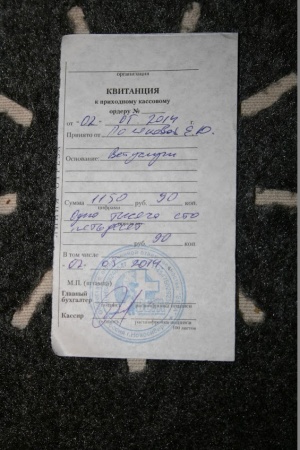 организация
КВИТАНЦИЯ
к приходному кассовому
ордеру №
от "02" 05 2014 г.
Принято от Е.Ю.
Основание: Ветуслуги
Сумма 1150 руб. 90 коп.
цифрами
Одна тысяча сто
пятьдесят
руб. 90 коп.
В том числе
"02" 05 2014 г.
М.П. (штампа)
Главный
бухгалтер
подпись расшифровка подписи
Кассир
подпись расшифровка подписи